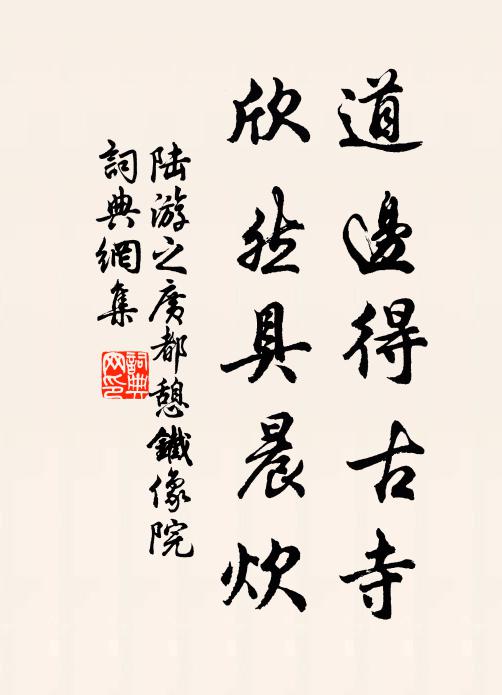 道邊得古寺
欣然具晨炊
陆游之廣都憩鐵像院
詞典網集
詞典網印